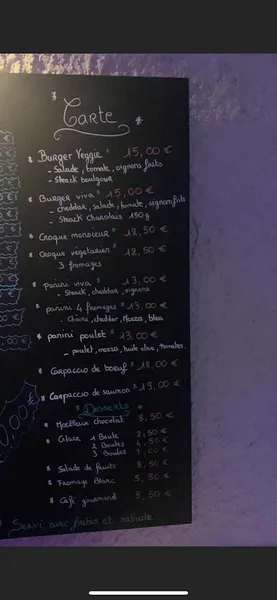 Carte
Burger Veggie 15,00 €
- Salade, tomate, oignons frits
- Steack boulgour
Burger viva 15,00 €
- cheddar, salade, tomate, oignon frits
- Steack Charolais 150g
Croque monsieur 12,50 €
Croque végétarien 12,50 €
3 fromages
panini viva 13,00 €
- Steack, cheddar, oignons
panini 4 fromages 13,00 €
Chèvre, cheddar, Mozza, bleu
panini poulet 13,00 €
- poulet, mozza, huile olive, tomates.
Carpaccio de boeuf 18,00 €
Carpaccio de saumon 19,00 €
Desserts
Moelleux chocolat 8,50 €
Glace 1 Boule 2,50 €
2 Boules 4,50 €
3 Boules 7,00 €
Salade de fruits 8,50 €
Fromage Blanc 5,50 €
Café gourmand 8,50 €
Servi avec frites et salade